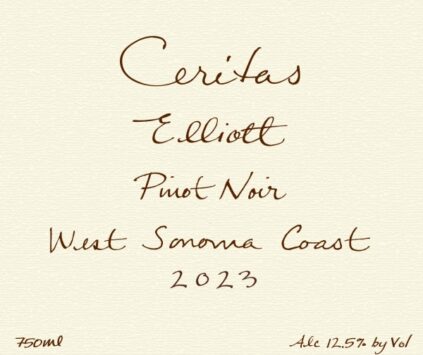 Ceritas
Elliott
Pinot Noir
West Sonoma Coast
2023
750ml
Alc 12.5% by Vol